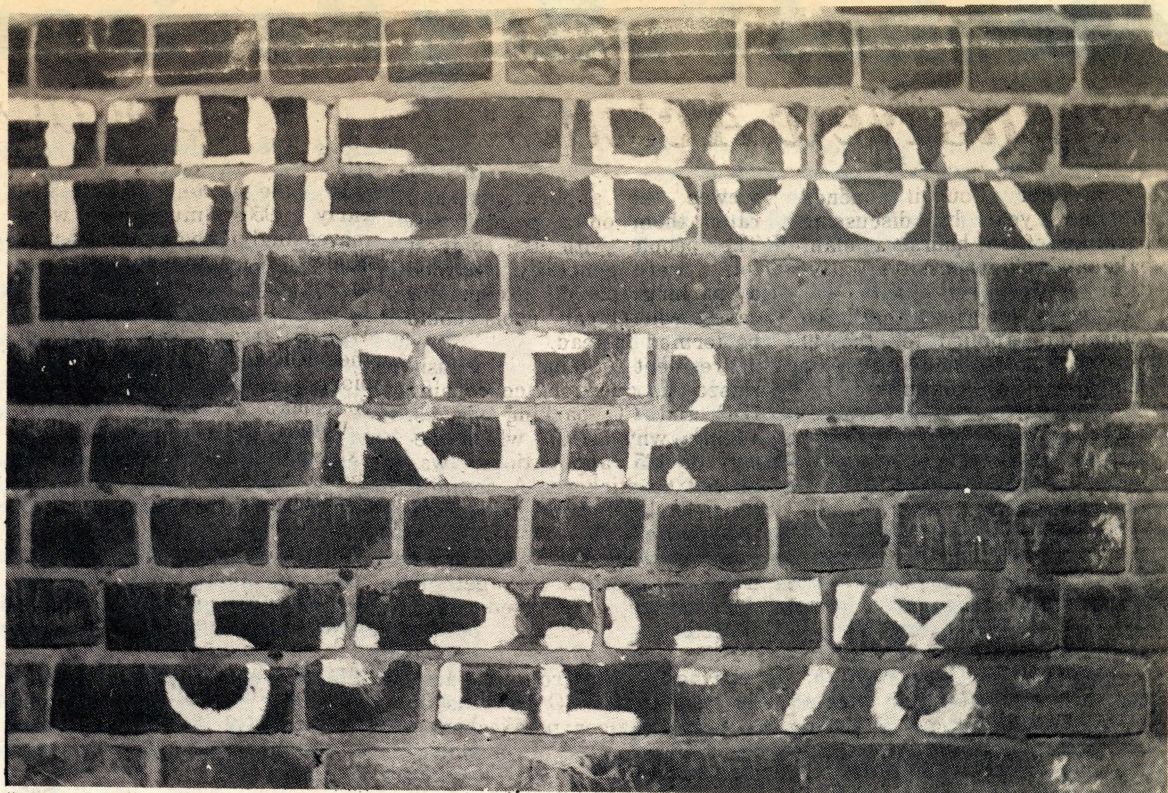 THE BOOK
R.I.P.
5-22-78